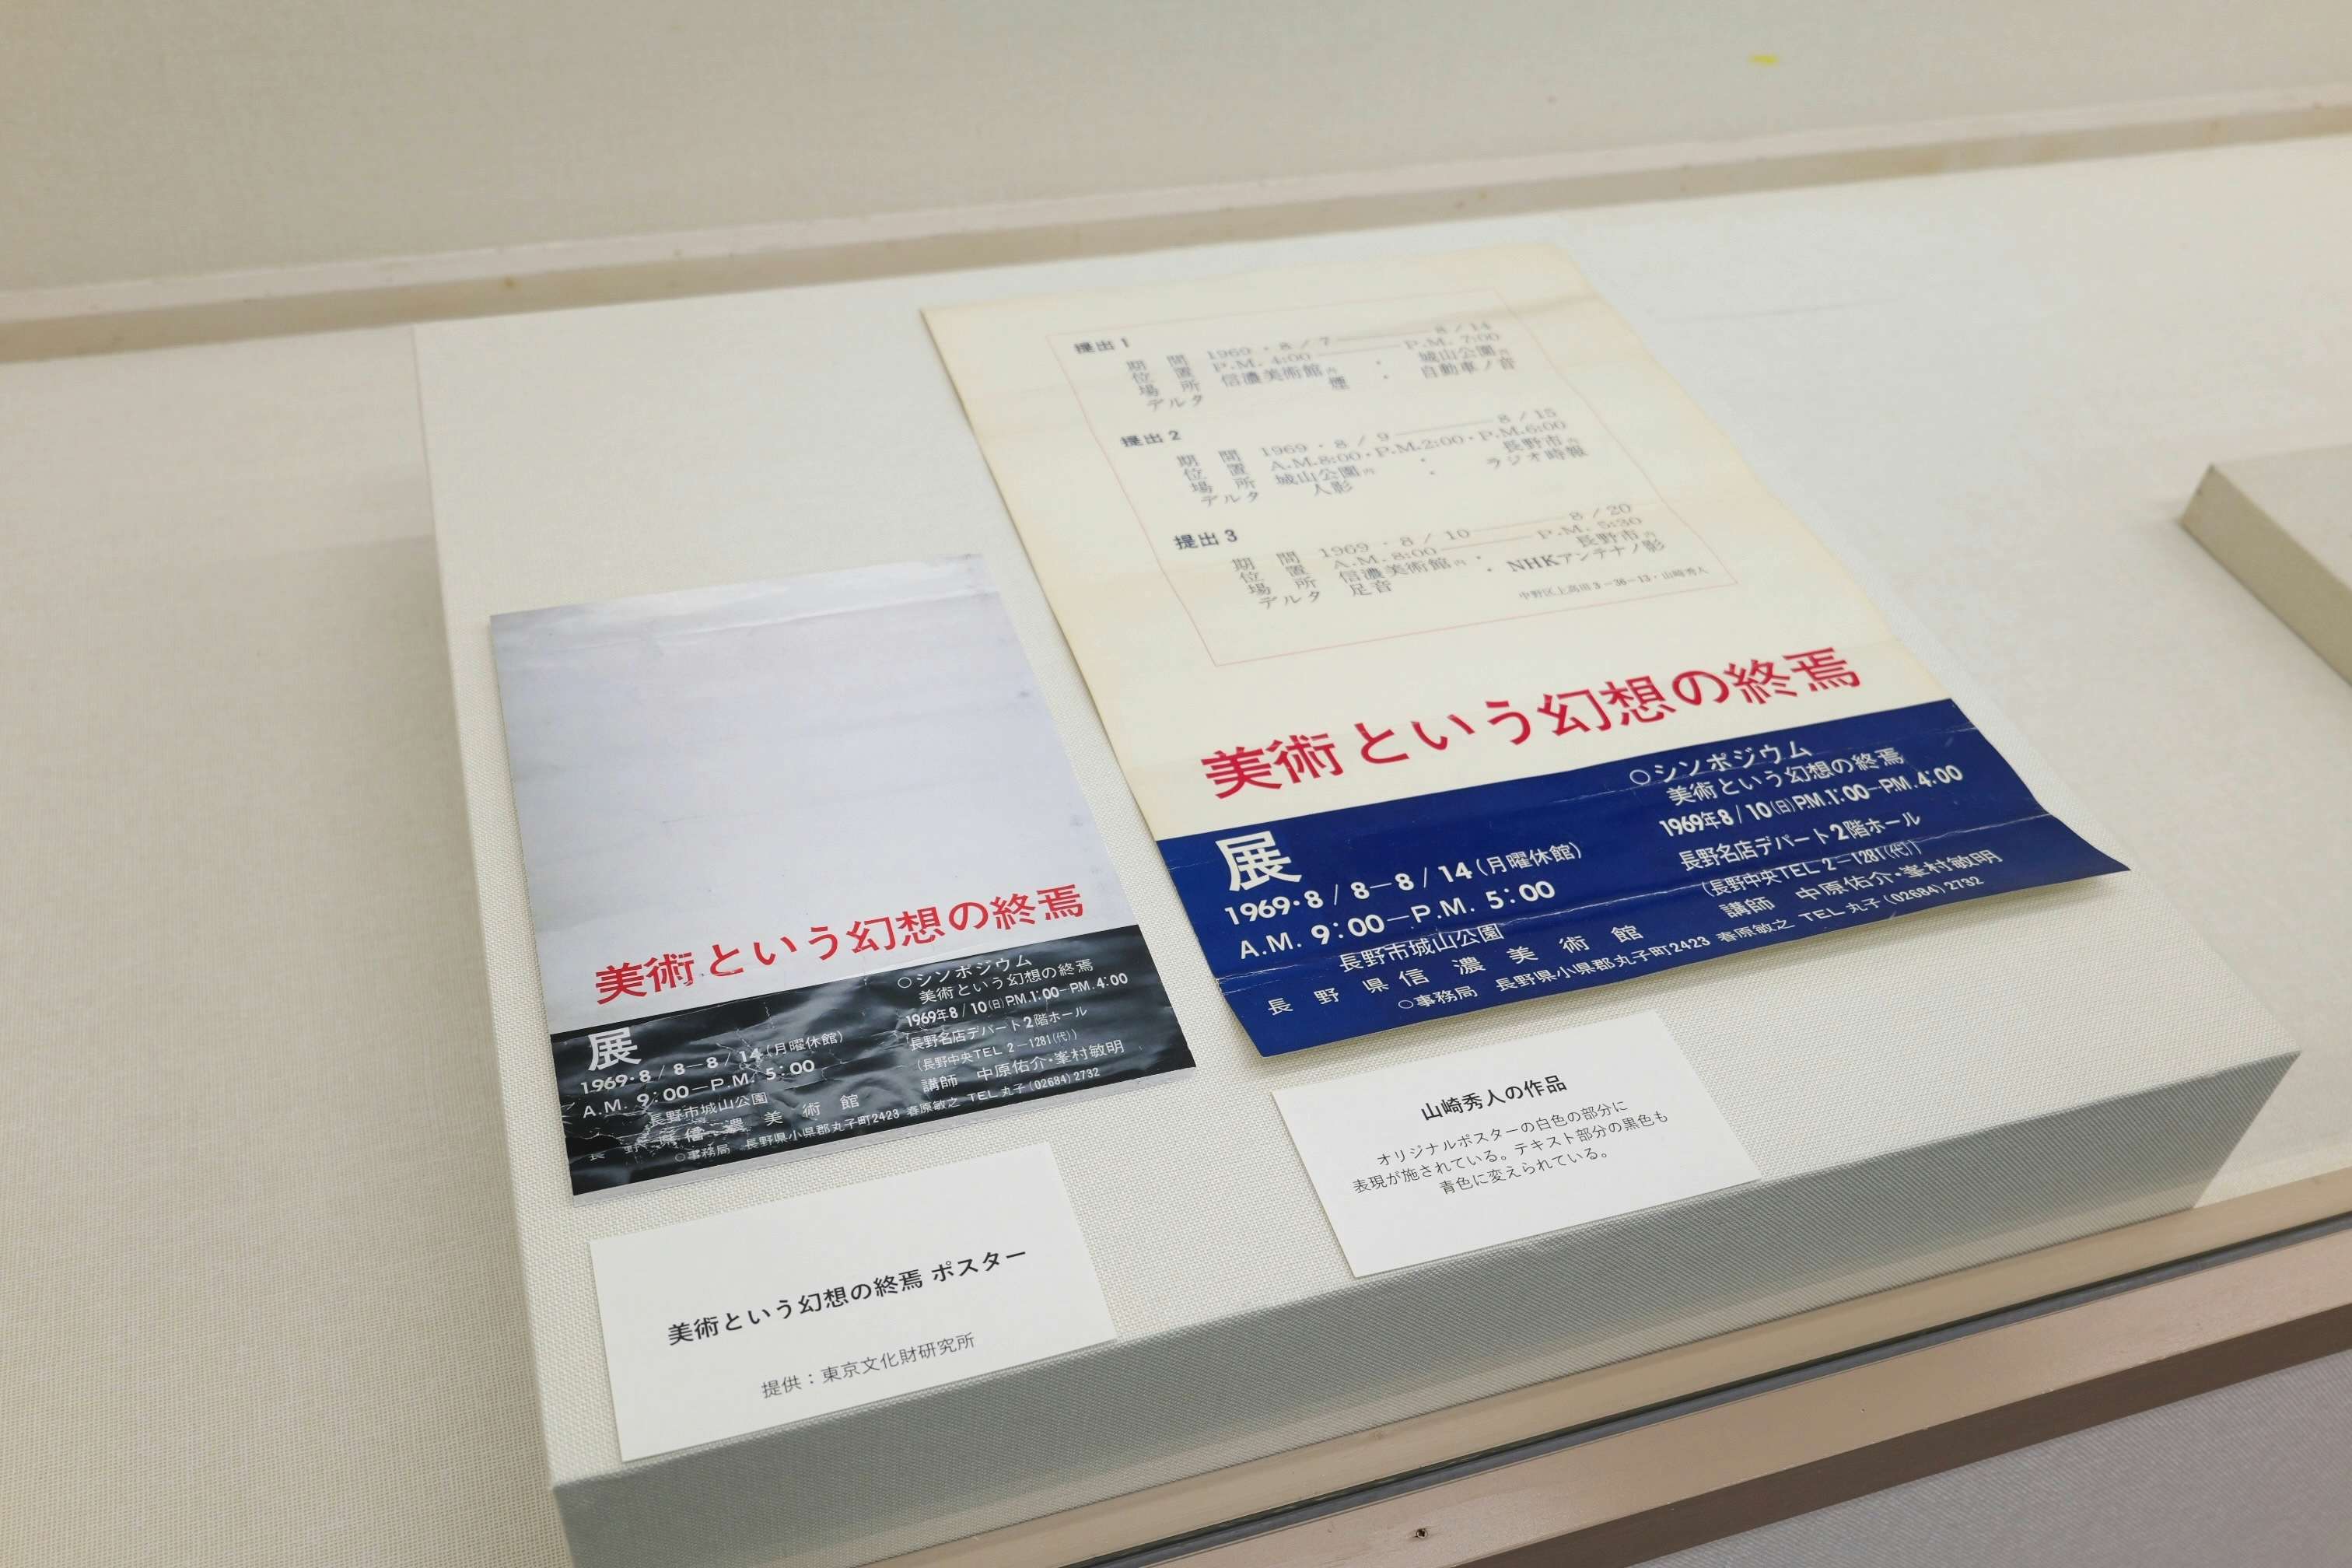 美術という幻想の終焉
展
1969・8/8—8/14(月曜休館)
A.M. 9:00—P.M. 5:00
長野市城山公園
長野県信濃美術館
○シンポジウム
美術という幻想の終焉
1969年8/10(日)P.M.1:00—P.M.4:00
長野名店デパート2階ホール
(長野中央TEL 2-1281(代))
講師 中原佑介・峯村敏明
○事務局 長野県小県郡丸子町2423 春原敏之 TEL 丸子(02684)2732
美術という幻想の終焉 ポスター
提供:東京文化財研究所
提出1
期間 1969・8/7—8/14
位置 P.M. 4:00—P.M. 7:00
場所 信濃美術館内・城山公園内
デルタ 煙・自動車ノ音
提出2
期間 1969・8/9—8/15
位置 A.M.8:00・P.M.2:00・P.M.6:00
場所 城山公園内・長野市内
デルタ 人影・ラジオ時報
提出3
期間 1969・8/10—8/20
位置 A.M. 8:00—P.M. 5:30
場所 信濃美術館内・長野市内
デルタ 足音・NHKアンテナノ影
中野区上高田3-36-13・山崎秀人
美術という幻想の終焉
展
1969・8/8—8/14(月曜休館)
A.M. 9:00—P.M. 5:00
長野市城山公園
長野県信濃美術館
○シンポジウム
美術という幻想の終焉
1969年8/10(日)P.M.1:00—P.M.4:00
長野名店デパート2階ホール
(長野中央TEL 2-1281(代))
講師 中原佑介・峯村敏明
○事務局 長野県小県郡丸子町2423 春原敏之 TEL 丸子(02684)2732
山崎秀人の作品
オリジナルポスターの白色の部分に
表現が施されている。テキスト部分の黒色も
青色に変えられている。